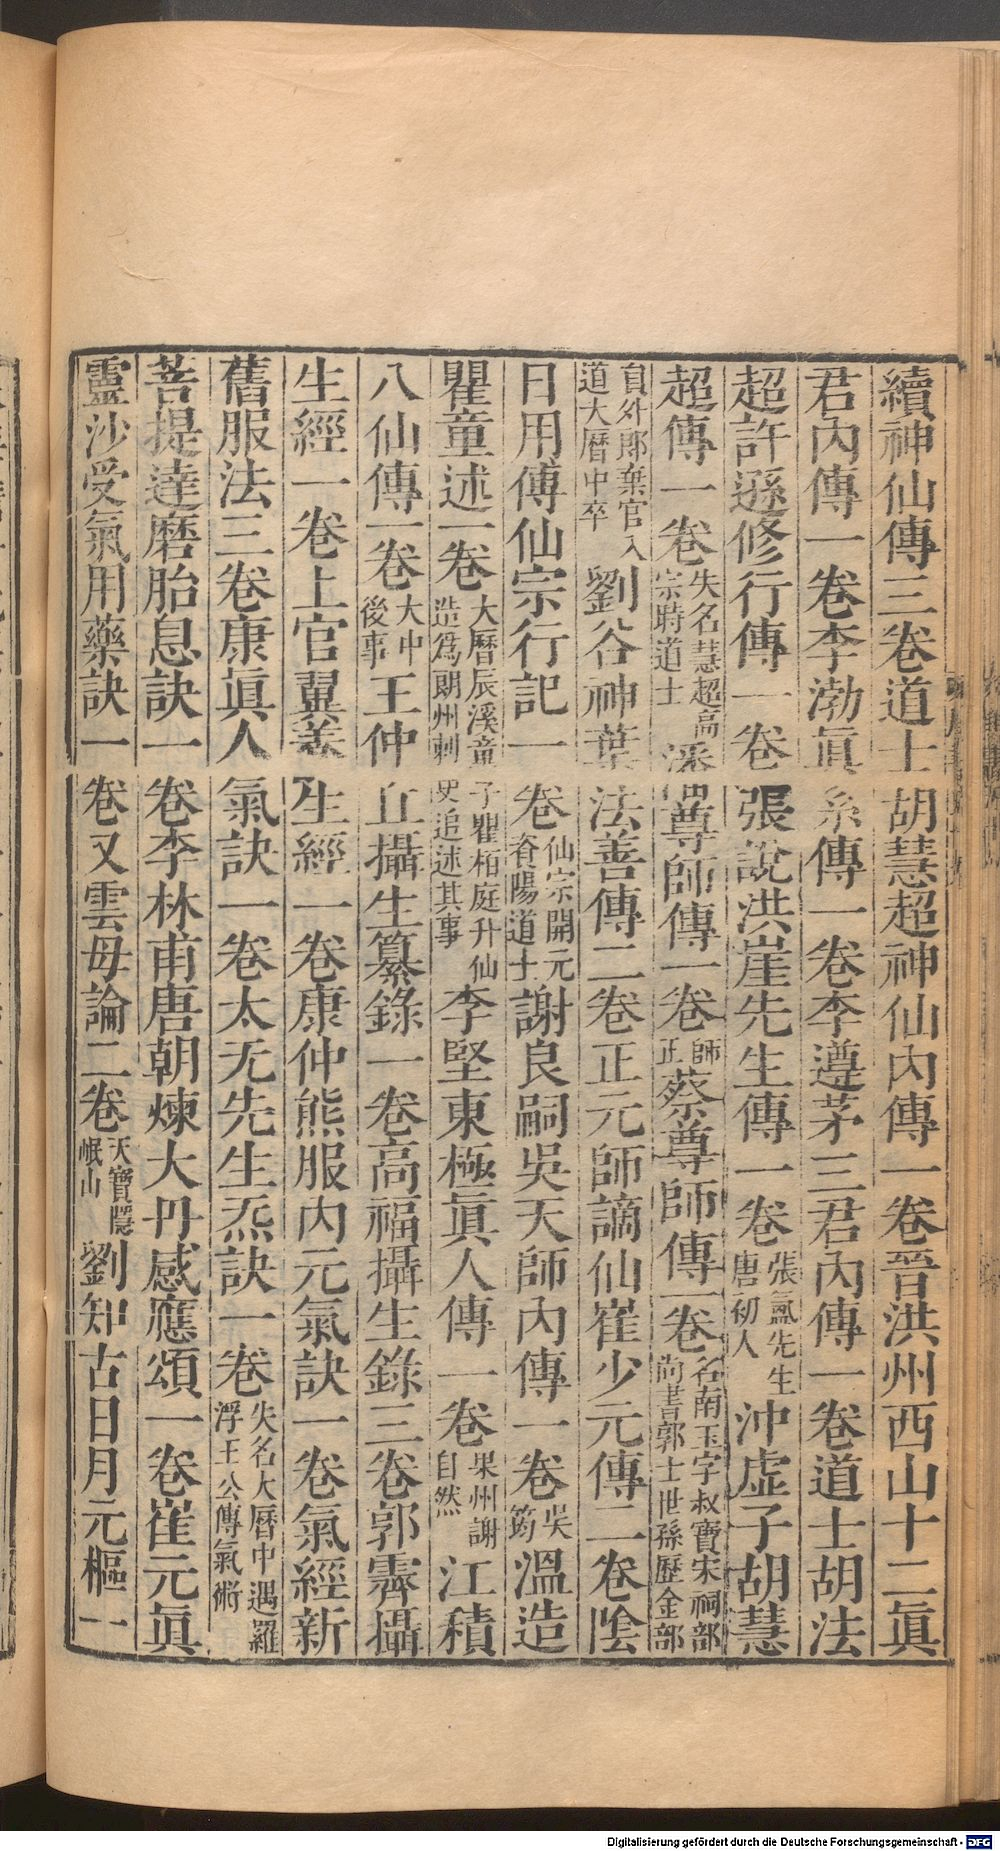 續神仙傳三卷道士胡慧超神仙內傳一卷晉洪州西山十二眞
君內傳一卷李渤眞系傳一卷李遵茅三君內傳一卷道士胡法
超許遜修行傳一卷張說洪崖先生傳一卷張氳先生唐初人沖虛子胡慧
超傳一卷失名慧超高宗時道士潘尊師傳一卷師正蔡尊師傳一卷名南玉字叔寶宋祠部尚書郭士世孫歷金部
員外郎棄官入道大曆中卒劉谷神葉法善傳二卷正元師謫仙崔少元傳二卷陰
日用傅仙宗行記一卷仙宗開元資陽道士謝良嗣吳天師內傳一卷吳筠溫造
瞿童述一卷大曆辰溪童子瞿柏庭升仙造爲朗州刺史追述其事李堅東極眞人傳一卷果州謝自然江積
八仙傳一卷大中後事王仲丘攝生纂錄一卷高福攝生錄三卷郭霽攝
生經一卷上官翼養生經一卷康仲熊服內元氣訣一卷氣經新
舊服法三卷康眞人氣訣一卷太无先生炁訣一卷失名大曆中遇羅浮王公傳氣術
菩提達磨胎息訣一卷李林甫唐朝煉大丹感應頌一卷崔元眞
靈沙受氣用藥訣一卷又雲母論二卷天寶隱岷山劉知古日月元樞一
Digitalisierung gefördert durch die Deutsche Forschungsgemeinschaft - DFG